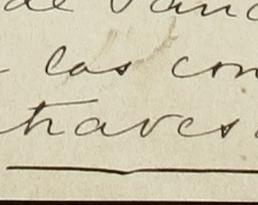 de
las con
traves